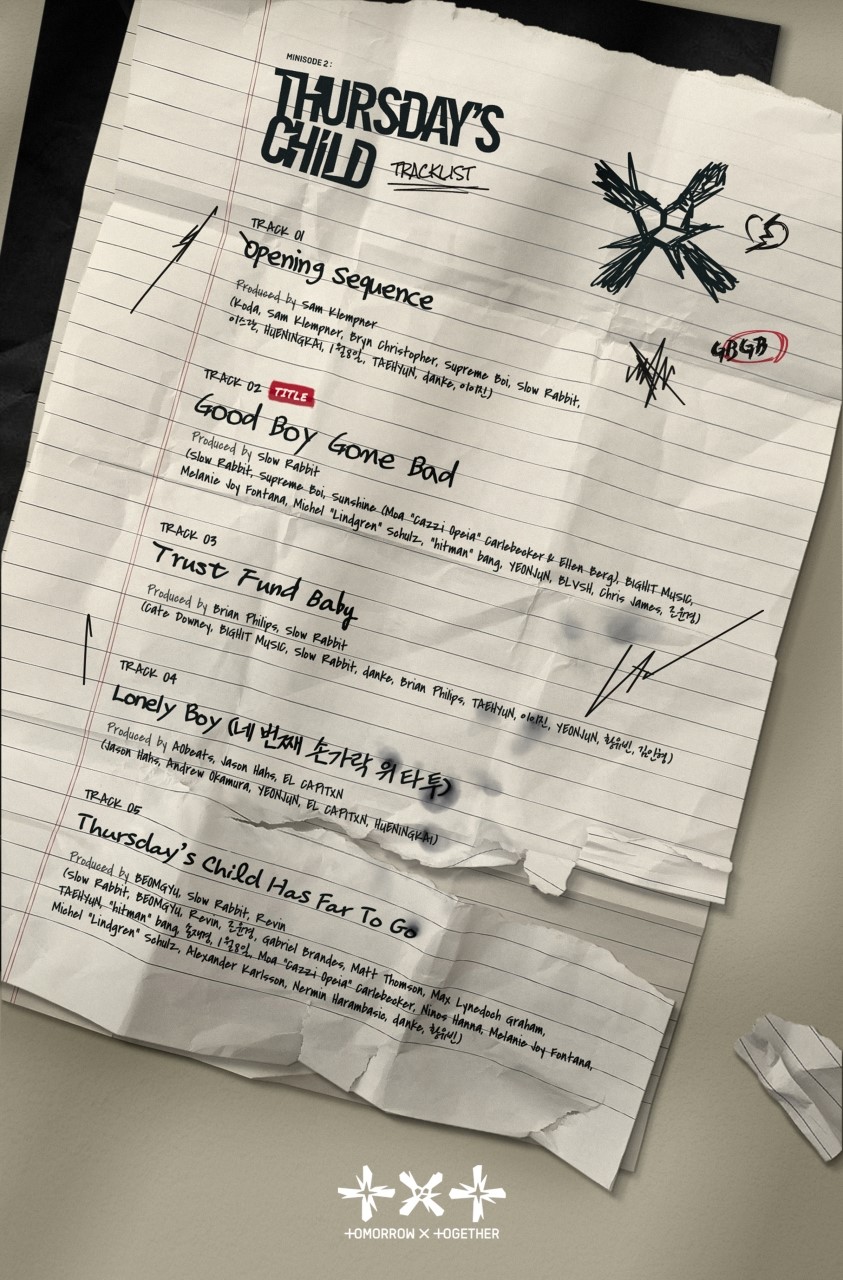 MINISODE 2 :
THURSDAY'S
CHILD
TRACKLIST
GBGB
TRACK 01
Opening Sequence
Produced by Sam Klempner
(Koda, Sam Klempner, Bryn Christopher, Supreme Boi, Slow Rabbit,
이스란, HUENINGKAI, 1월8일, TAEHYUN, danke, 이이진)
TRACK 02 TITLE
Good Boy Gone Bad
Produced by Slow Rabbit
(Slow Rabbit, Supreme Boi, Sunshine (Moa "Cazzi Opeia" Carlebecker & Ellen Berg), BIGHIT MUSIC,
Melanie Joy Fontana, Michel "Lindgren" Schulz, "hitman" bang, YEONJUN, BLVSH, Chris James, 르윤영)
TRACK 03
Trust Fund Baby
Produced by Brian Philips, Slow Rabbit
(Cate Downey, BIGHIT MUSIC, Slow Rabbit, danke, Brian Philips, TAEHYUN, 이이진, YEONJUN, 황유빈, 김인형)
TRACK 04
Lonely Boy (네 번째 손가락 위 타투)
Produced by AObeats, Jason Hahs, EL CAPITXN
(Jason Hahs, Andrew Okamura, YEONJUN, EL CAPITXN, HUENINGKAI)
TRACK 05
Thursday's Child Has Far To Go
Produced by BEOMGYU, Slow Rabbit, Revin
(Slow Rabbit, BEOMGYU, Revin, Gabriel Brandes, Matt Thomson, Max Lynedoch Graham,
TAEHYUN, "hitman" bang, 1월8일, Moa "Cazzi Opeia" Carlebecker, Ninos Hanna, Melanie Joy Fontana,
Michel "Lindgren" Schulz, Alexander Karlsson, Nermin Harambasic, danke, 황유빈)
TOMORROW X TOGETHER